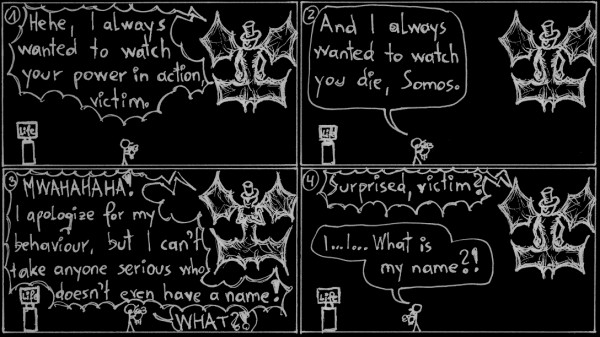 1
Hehe, I always
wanted to watch
your power in action,
victim.
Life
2
And I always
wanted to watch
you die, Somos.
Life
3
MWAHAHAHA!
I apologize for my
behaviour, but I can't
take anyone serious who
doesn't even have a name!
Life
WHAT?!
4
Surprised, victim?
I...I... What is
my name?!
Life